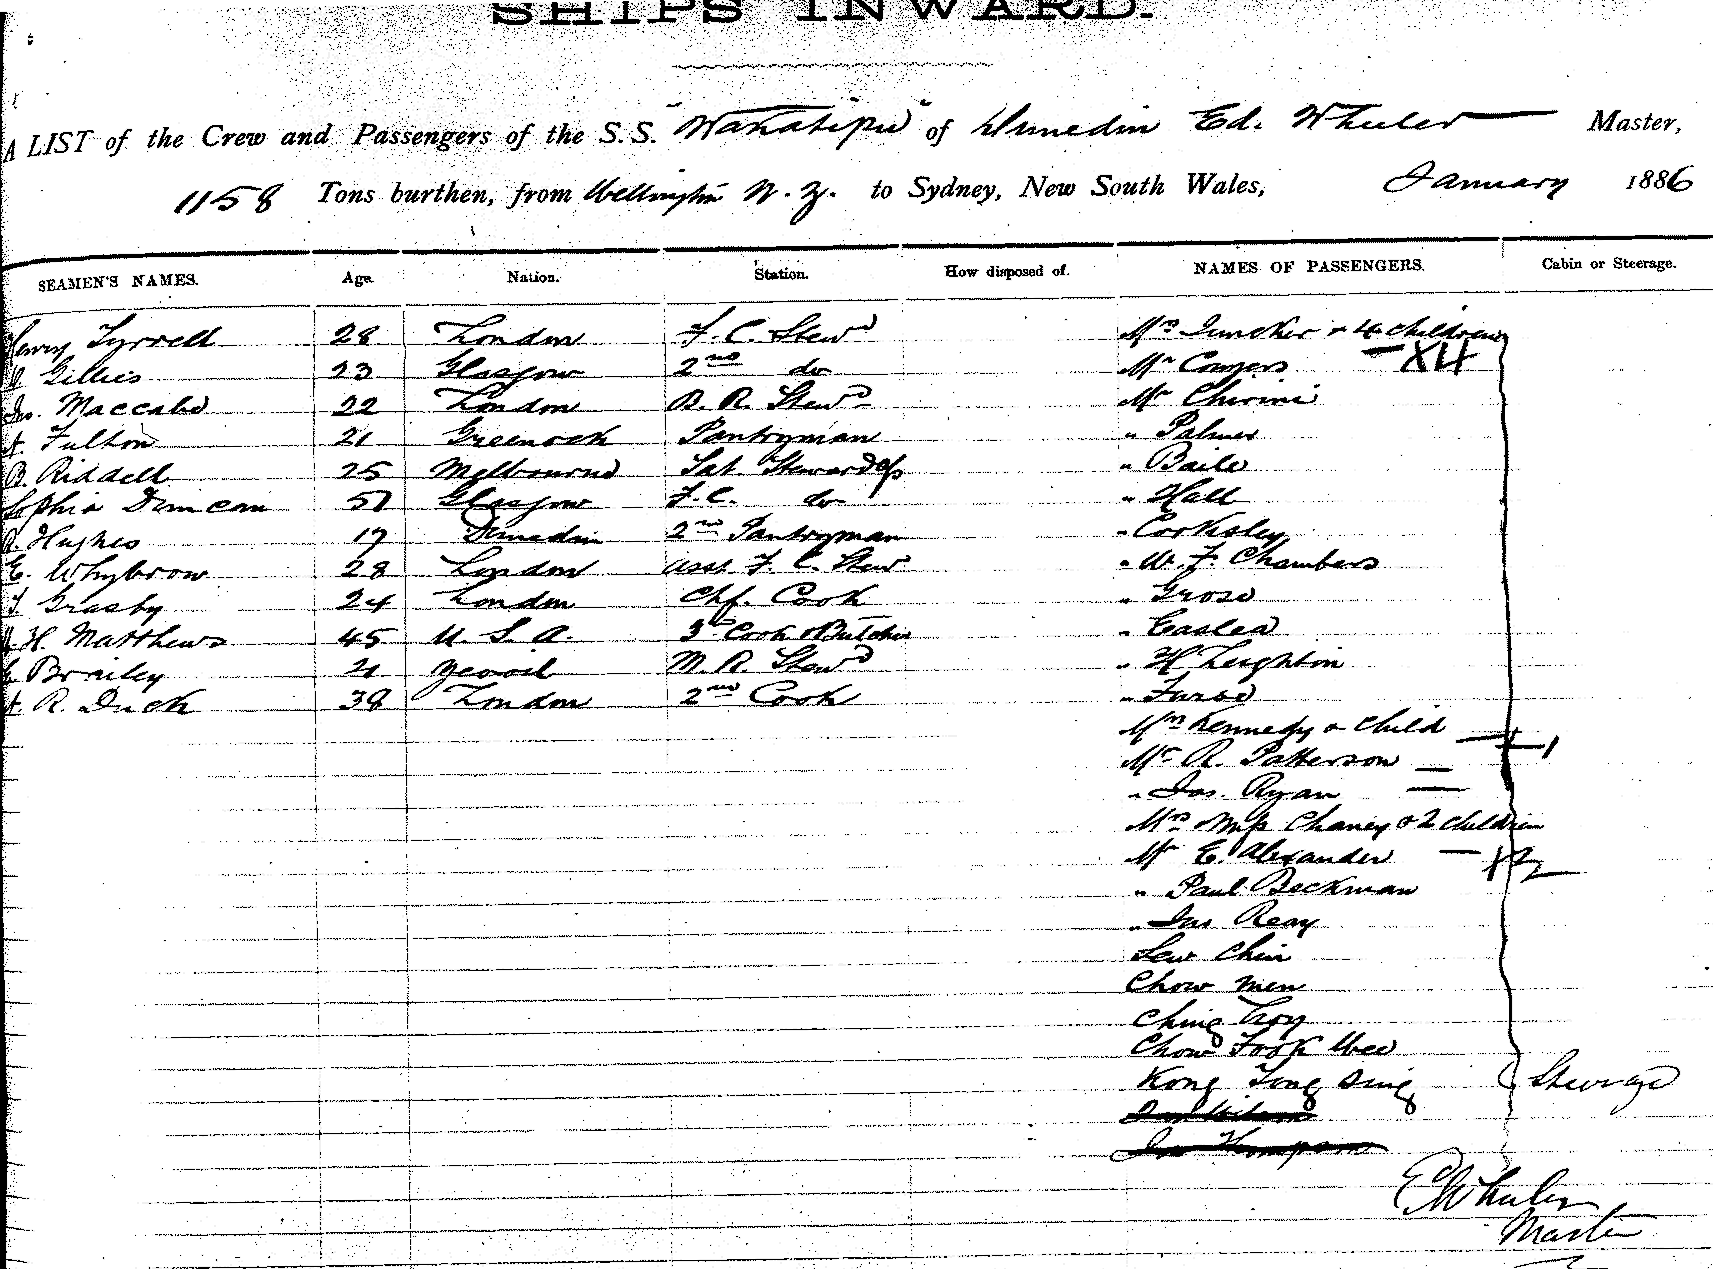 SHIPS INWARD.
A LIST of the Crew and Passengers of the S.S. "Wakatipu" of Dunedin Ed. Wheeler Master,
1158 Tons burthen, from Wellington N. Z. to Sydney, New South Wales, January 1886
SEAMEN'S NAMES. Age. Nation. Station. How disposed of. NAMES OF PASSENGERS. Cabin or Steerage.
Henry Tyrrell 28 London F. C. Stewd Mrs Juncker & 4 children
Gillies 23 Glasgow 2nd do Mr Conyers — X4
Jno. Maccabe 22 London B. R. Stewd Mr Chirini
Fulton 21 Greenock Pantryman " Palmer
B. Riddell 25 Melbourne Sal Stewardess " Baile
Sophia Duncan 51 Glasgow F.C. do " Hall
Hughes 17 Dunedin 2nd Pantryman " Corksley
E. Whybrow 28 London Asst F. C. Stew " W. F. Chambers
Grasby 24 London Chf. Cook " Grose
H. Matthews 45 U. S. A. 3rd Cook & Butcher " Easlea
Brailey 21 Yeovil M. R. Stewd " H Leighton
R. Duck 38 London 2nd Cook "
Mrs Kennedy & Child — +1
Mr R. Patterson —
" Jas. Ryan —
Mrs & Miss Chaney & 2 children
Mr E. Alexander — +2
" Paul Beckman
" Jas Reay
Lew Chin
Chow Men
Ching Troy
Chow Fook Wee
Kong Tong Sing Steerage
Jno Thompson
E Wheeler
Master